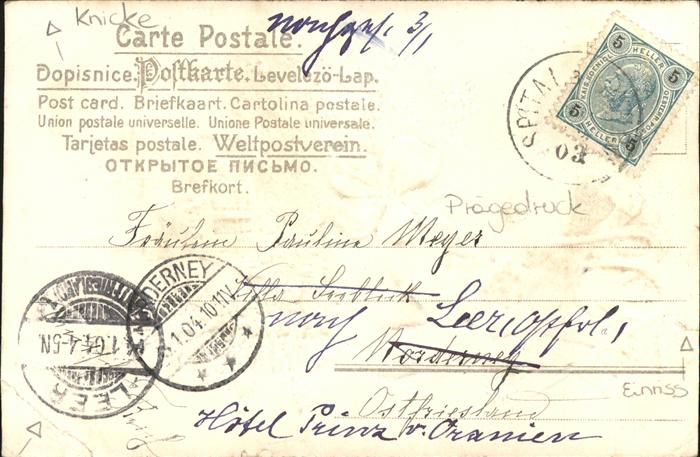 Knicke
Carte Postale.
Dopisnice. Postkarte. Levelezö-Lap.
Post card. Briefkaart. Cartolina postale.
Union postale universelle. Unione Postale universale.
Tarjetas postale. Weltpostverein.
ОТКРЫТОЕ ПИСЬМО.
Brefkort.
3/1
5 HELLER 5
KAIS. KOENIGL. OESTERR. POST
5 HELLER 5
SPITAL
03
Prägedruck
Fräulein Pauline Meyer
Villa Seeblick
nach Leer, Ostfrl,
Norderney
Ostfriesland
Hôtel Prinz v. Oranien
NORDERNEY
1.04.10-11V.
LEER
1.04.4-5N.
Einriss